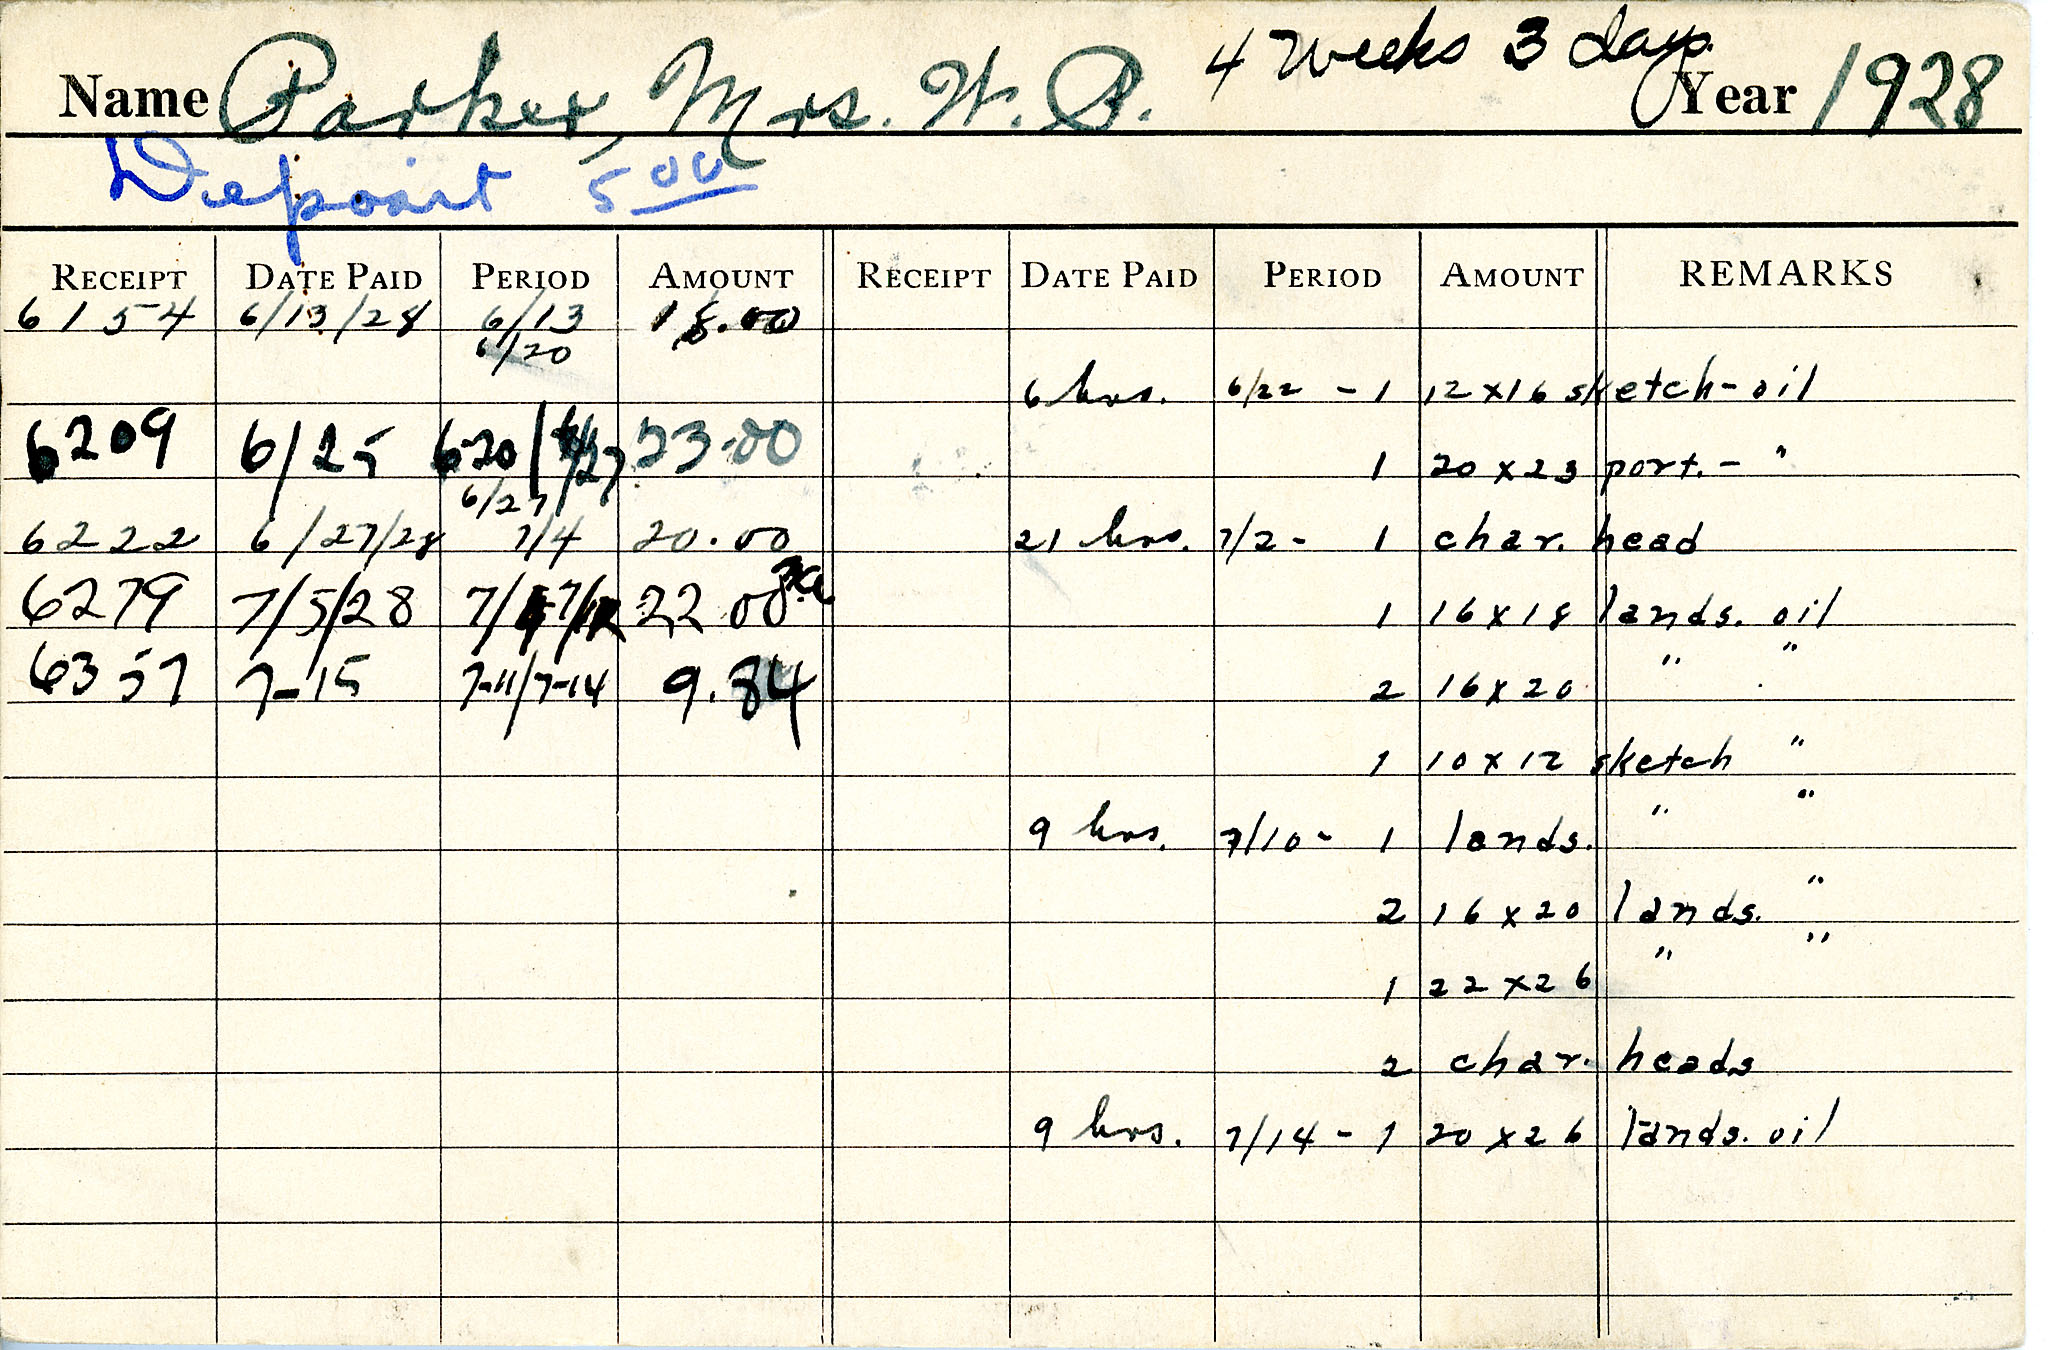 4 Weeks 3 days
Name Parker, Mrs. W. P. Year 1928
Deposit 5 00
RECEIPT DATE PAID PERIOD AMOUNT RECEIPT DATE PAID PERIOD AMOUNT REMARKS
6154 6/13/28 6/13 18.00
6/20
6 hrs. 6/22 - 1 12 x 16 sketch - oil
6209 6/25 6 20 / 6/27 23.00 1 20 x 23 port. - "
6/27
6222 6/27/28 7/4 20.00 21 hrs. 7/2 - 1 char. head
6279 7/5/28 22 00 1 16 x 18 lands. oil
6357 7-15 7-11/7-14 9.84 2 16 x 20 " "
1 10 x 12 sketch "
9 hrs. 7/10 - 1 lands. " "
2 16 x 20 lands. "
1 22 x 26 " "
2 char. heads
9 hrs. 7/14 - 1 20 x 26 lands. oil